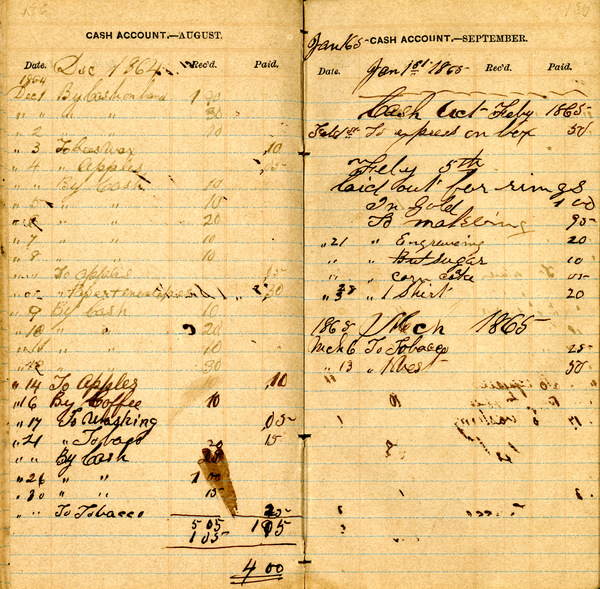 186
CASH ACCOUNT.—AUGUST.
Date. Rec'd. Paid.
Dec 1864
1864
Dec 1 By Cash on hand 1 00
" " " " 30
" 2 " " 70
" 3 To 10
" 4 " Apples 05
" " By Cash 10
" 5 " " 15
" " " 20
" 7 " " 10
" 8 " " 10
" " To apples 05
30
" 9 By Cash 10
" 10 " " 20
" " " 10
" " " 30
" 14 To Apples 10
" 16 By Coffee 10
" 17 To Washing 05
" 21 " Tobaco 20 15
" " By Cash
" 26 " " 1 00
" 30 " " 15
" " To Tobacco 25
5 05 1 05
1 05
4 00
187
Jan 1865 CASH ACCOUNT.—SEPTEMBER.
Date. Jan 1st 1865 Rec'd. Paid.
Cash Act Feby 1865
To express on box 50
Feby 5th
laid out for rings
In Gold 1 00
To making 95
" 21 " Engraveing 20
" But sugar 10
" corn cake 05
" 28 " 1 Shirt 20
1865 Mch 1865
Mch 6 To Tobacco 25
" 13 " 1 Vest 50